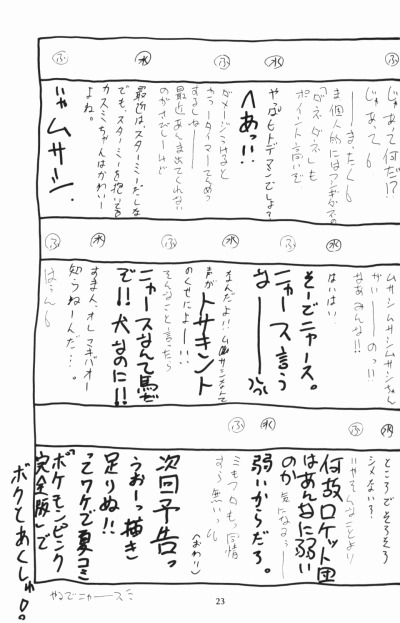 ふ
じゃあって何だ!?
じゃあっても
ま個人的にはフシギダネの
「ダネダネ」も
ポイント高いで
水
やっぱヒトデマンでしょう
へあっ!!
ふ
ダメージうけると
最近あんま出てくれない
水
最近は、スターミーだしな
でも、スターミーを抱いてる
カスミちゃんはかわいー
よね。
ふ
じゃムサシ.
ムサシムサシムサシちゃん
がいーーのっ!!
なあみんな!!
水
はいはい
そーでニャース。
ふ
ニャース言う
なーーー
水
なんだよ!!ムサシなんて
声がトサキント
のくせによー!!
ふ
そんなこと言ったら
ニャースなんて馬だ
で!!犬なのに!!
水
すまん、オレマキバオー
知らねーんだ…。
ふ
はうんも
ところでそろそろ
シメない?
水
ふ
いやそんなことより
何故ロケット団
はあんなに弱い
のか気になるぅー
水
弱いからだろ。
ふ
ミもフタもっ同情
すら無いっスね
(おわり)
次回予告っ
うおーっ描き
足りぬ!!
ってワケで夏コミ
「ポケモンピンク
完全版」で
ボクとあくしゅ!。
やるでニャースミ
23